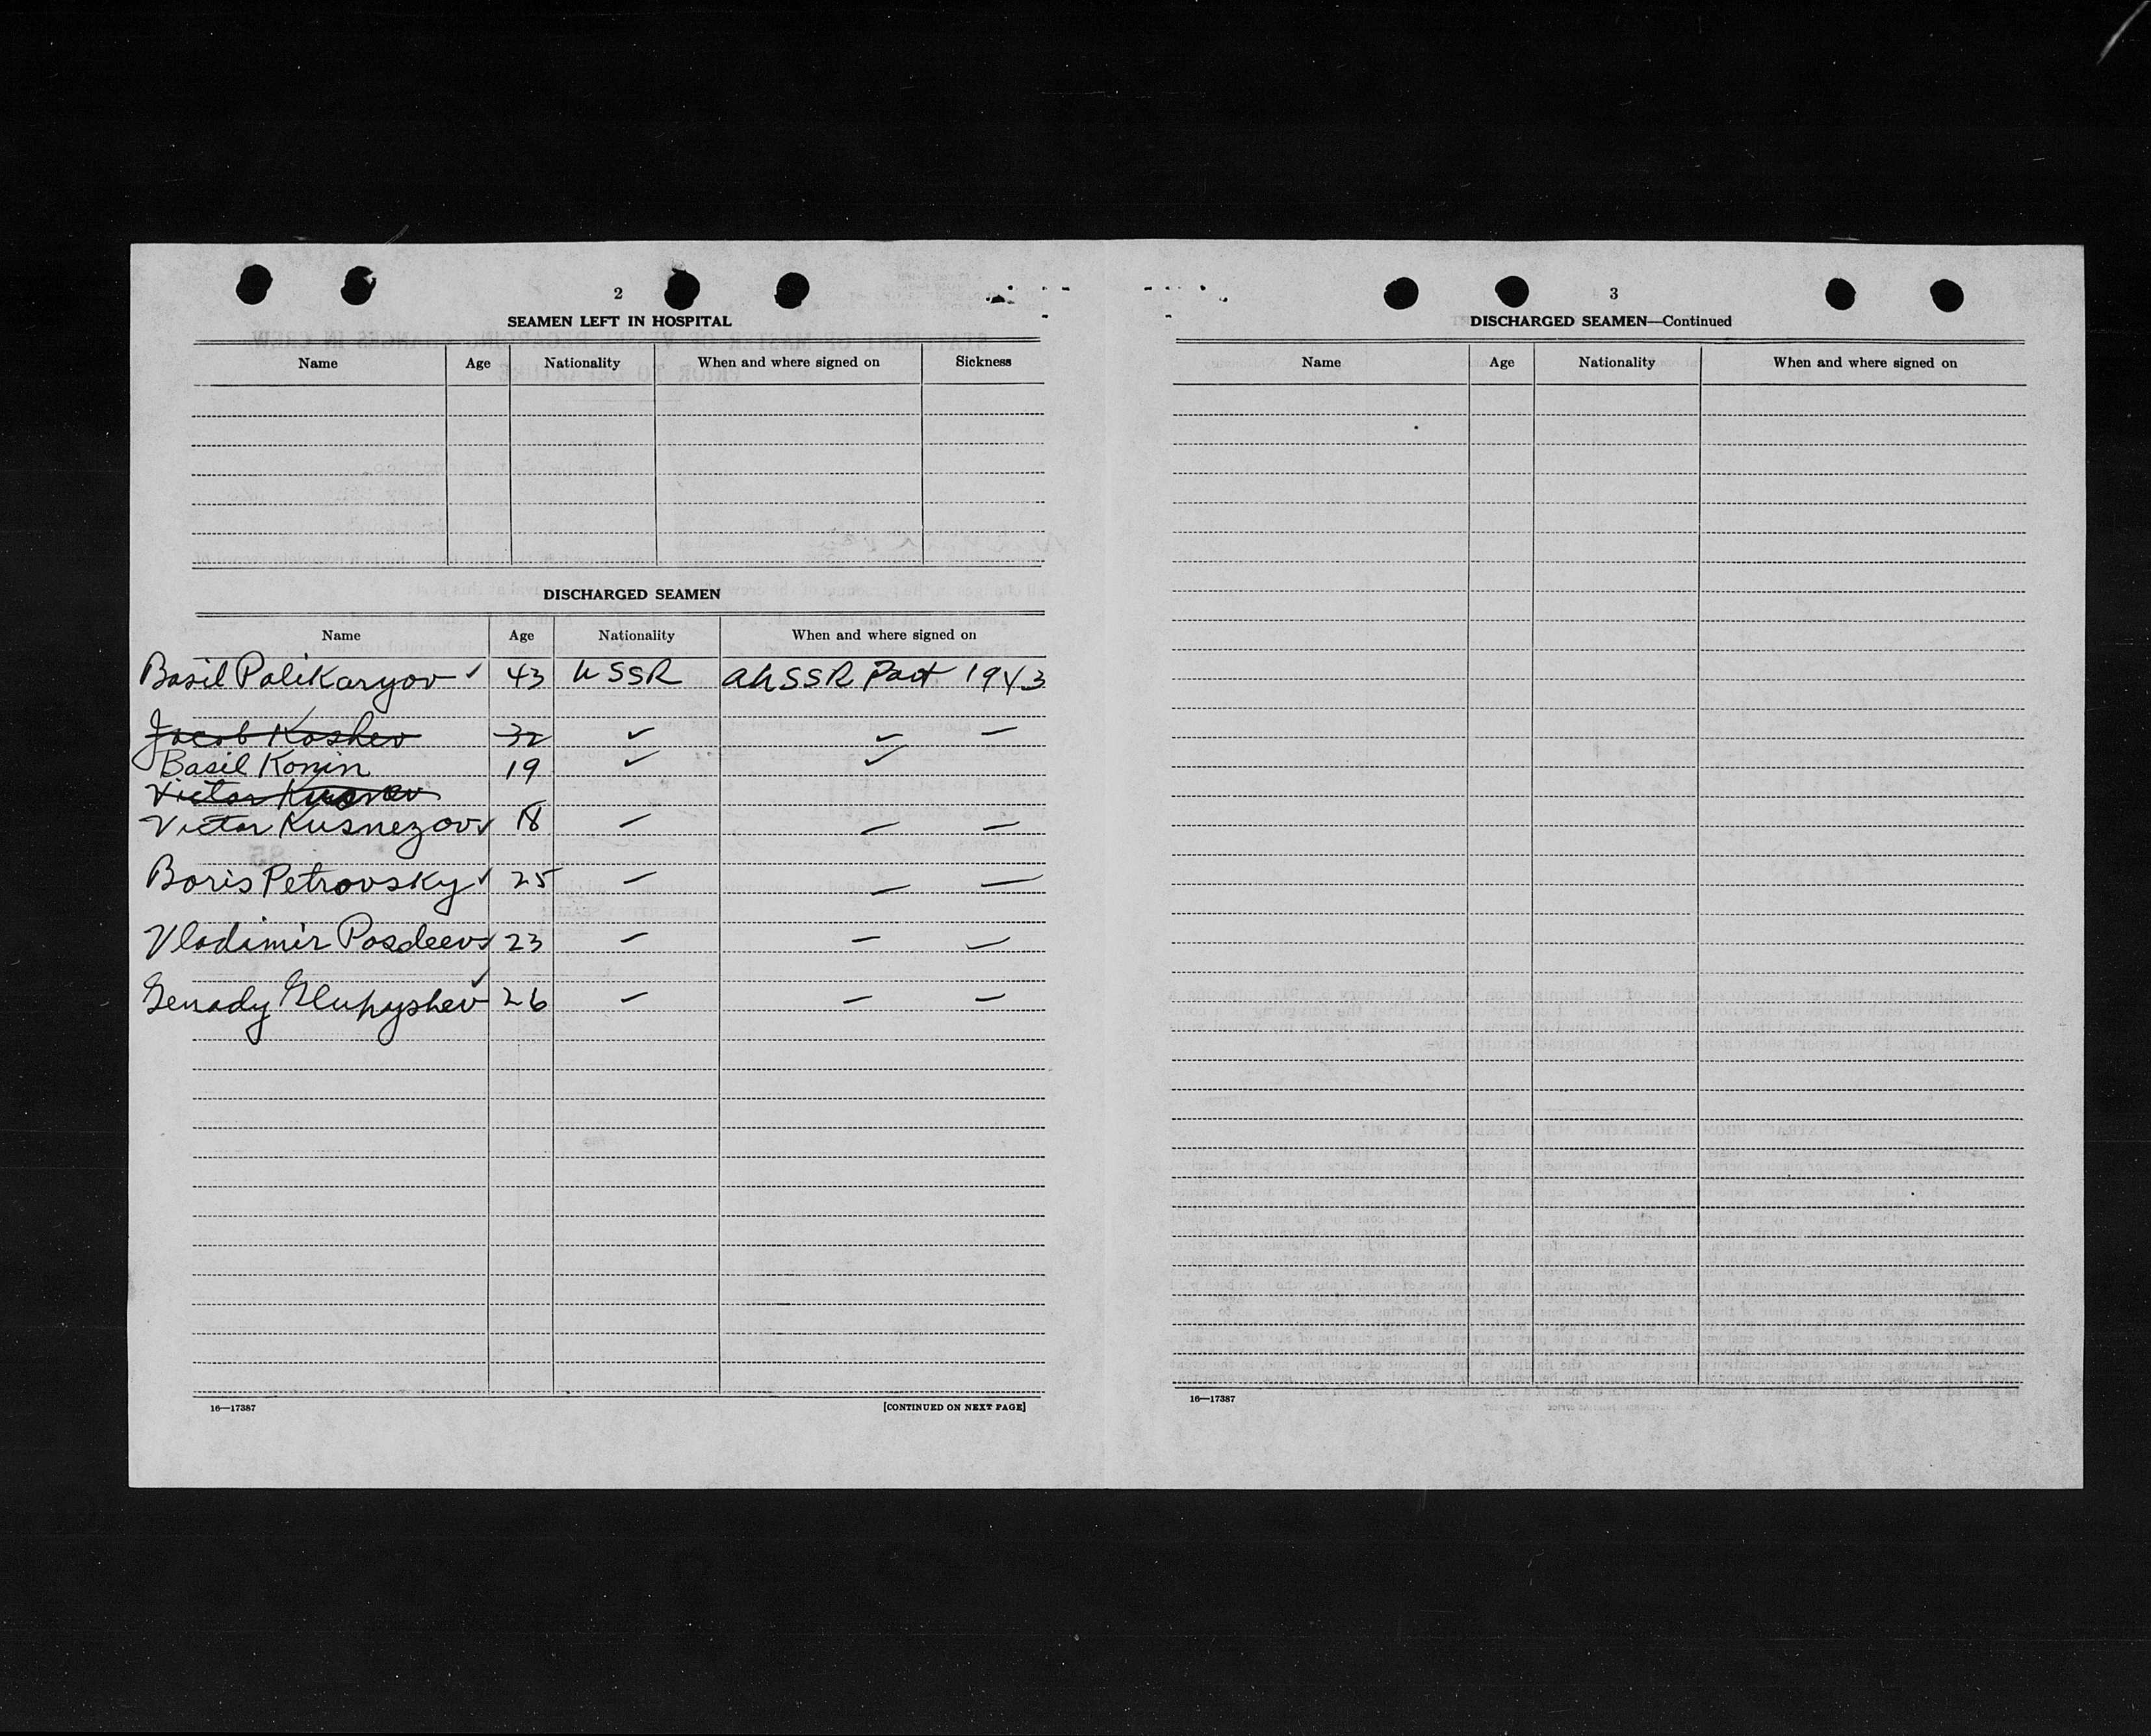 2
SEAMEN LEFT IN HOSPITAL
Name Age Nationality When and where signed on Sickness
DISCHARGED SEAMEN
Name Age Nationality When and where signed on
Basil Polikaryov ✓ 43 USSR a USSR Port 1943
Jacob Koshev 32 ✓ ✓ —
Basil Konin 19 ✓ ✓
Victor
Victor Kusnezov ✓ 18 — — —
Boris Petrovsky ✓ 25 — — —
Vladimir Posdeev ✓ 23 — — —
Genady Glupyshev ✓ 26 — — —
16—17387 [CONTINUED ON NEXT PAGE]
3
DISCHARGED SEAMEN—Continued
Name Age Nationality When and where signed on
16—17387